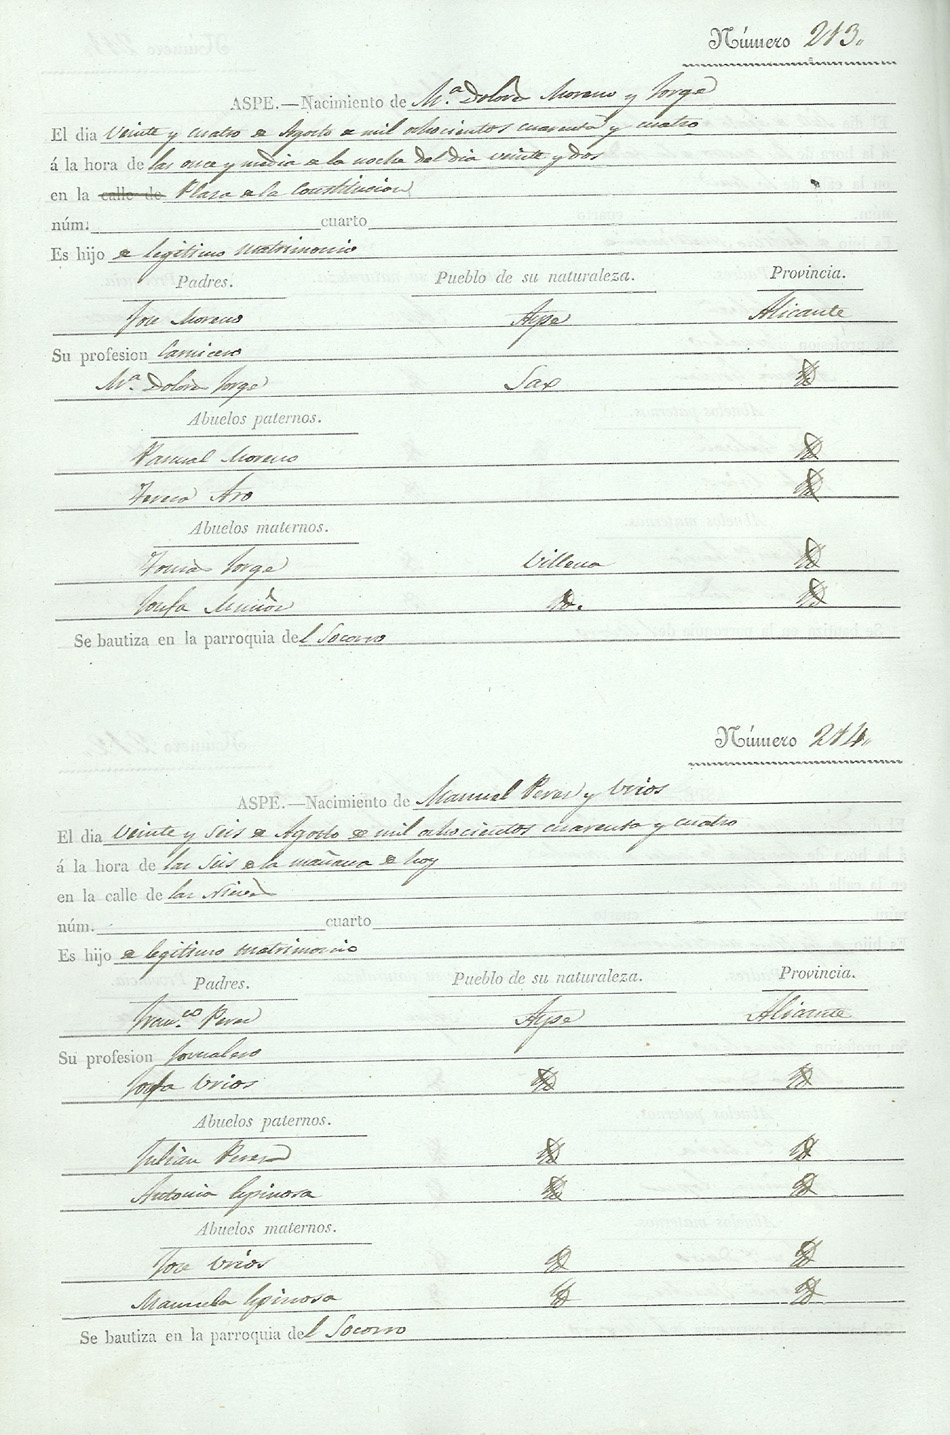 Número 213.
ASPE.—Nacimiento de Mª Dolores Moreno y Jorge
El dia Veinte y cuatro de Agosto de mil ochocientos cuarenta y cuatro
á la hora de las once y media de la noche del dia veinte y dos
en la calle de Plaza de la Constitucion
núm. cuarto
Es hijo de legitimo matrimonio
Padres. Pueblo de su naturaleza. Provincia.
Jose Moreno Aspe Alicante
Su profesion Carnicero
Mª Dolores Jorge Sax Yd
Abuelos paternos.
Manuel Moreno Yd
Teresa Aro Yd
Abuelos maternos.
Tomas Jorge Villena Yd
Josefa Muñoz Yd. Yd
Se bautiza en la parroquia del Socorro
Número 214.
ASPE.—Nacimiento de Manuel Perez y Urios
El dia Veinte y Seis de Agosto de mil ochocientos cuarenta y cuatro
á la hora de las Seis de la mañana de hoy
en la calle de las Nieves
núm. cuarto
Es hijo de legitimo matrimonio
Padres. Pueblo de su naturaleza. Provincia.
Franco Perez Aspe Alicante
Su profesion Jornalero
Josefa Urios Yd Yd
Abuelos paternos.
Julián Perez Yd Yd
Antonia Espinosa Yd Yd
Abuelos maternos.
Jose Urios Yd Yd
Manuela Espinosa Yd Yd
Se bautiza en la parroquia del Socorro